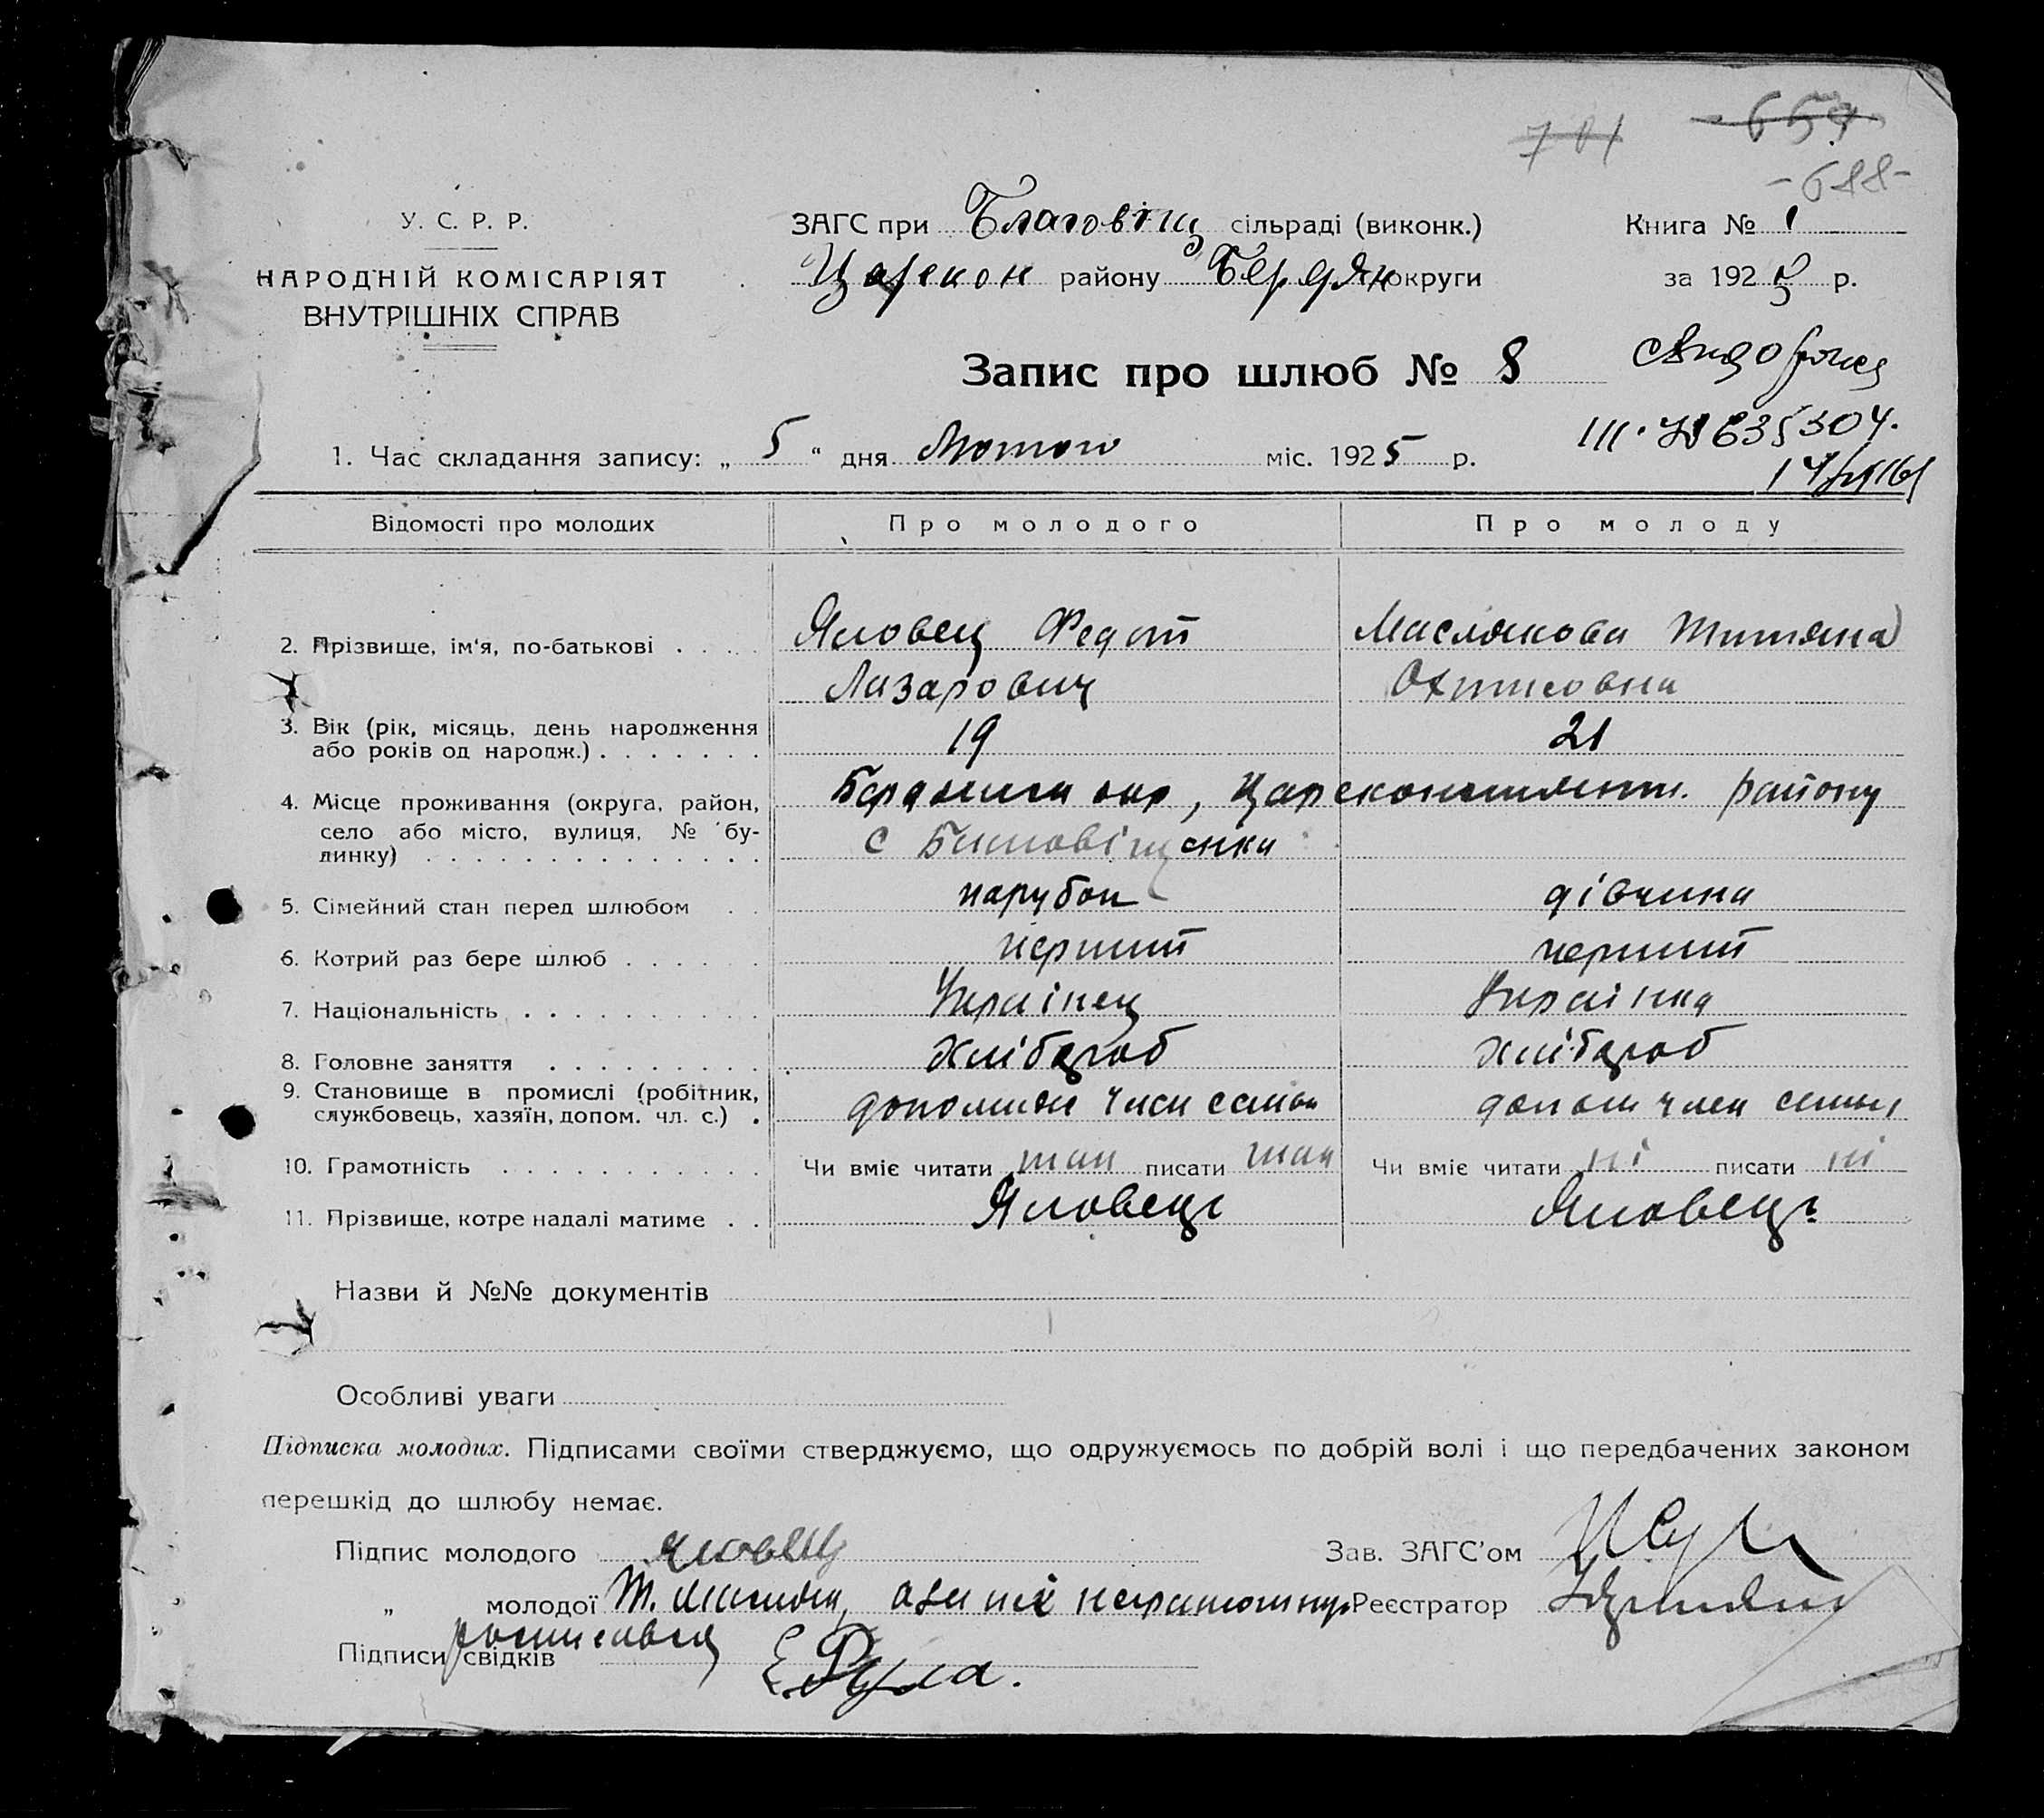 701 659
-688-
У. С. Р. Р.
НАРОДНІЙ КОМІСАРІЯТ
ВНУТРІШНІХ СПРАВ
ЗАГС при Благовіщ сільраді (виконк.)
Царекон району Бердян округи
Книга № 1
за 1925 р.
Запис про шлюб № 8
III.
1. Час складання запису: „ 5 “ дня Лютого міс. 1925 р.
Відомості про молодих Про молодого Про молоду
2. Прізвище, ім'я, по-батькові . . . . Яловец Федот Маслякова Титяна
Лазарович
3. Вік (рік, місяць, день народження
або років од народж.) . . . . . . . 19 21
4. Місце проживання (округа, район,
село або місто, вулиця, № бу-
динку) . . . . . . . . . . . . . .
окр, Цареконстянт. району
с Благовіщенка
5. Сімейний стан перед шлюбом . . парубок дівчина
6. Котрий раз бере шлюб . . . . . . перший перший
7. Національність . . . . . . . . . . Украінец Украінка
8. Головне заняття . . . . . . . . . . хлібороб хлібороб
9. Становище в промислі (робітник,
службовець, хазяїн, допом. чл. с.) . член семьи допом член семьи
10. Грамотність . . . . . . . . . . . Чи вміє читати так писати так Чи вміє читати ні писати ні
11. Прізвище, котре надалі матиме . . Яловець Яловець
Назви й №№ документів
Особливі уваги
Підписка молодих. Підписами своїми стверджуємо, що одружуємось по добрій волі і що передбачених законом
перешкід до шлюбу немає.
Підпис молодого Яловец Зав. ЗАГС'ом
„ молодої Т. Реєстратор
Підписи свідків